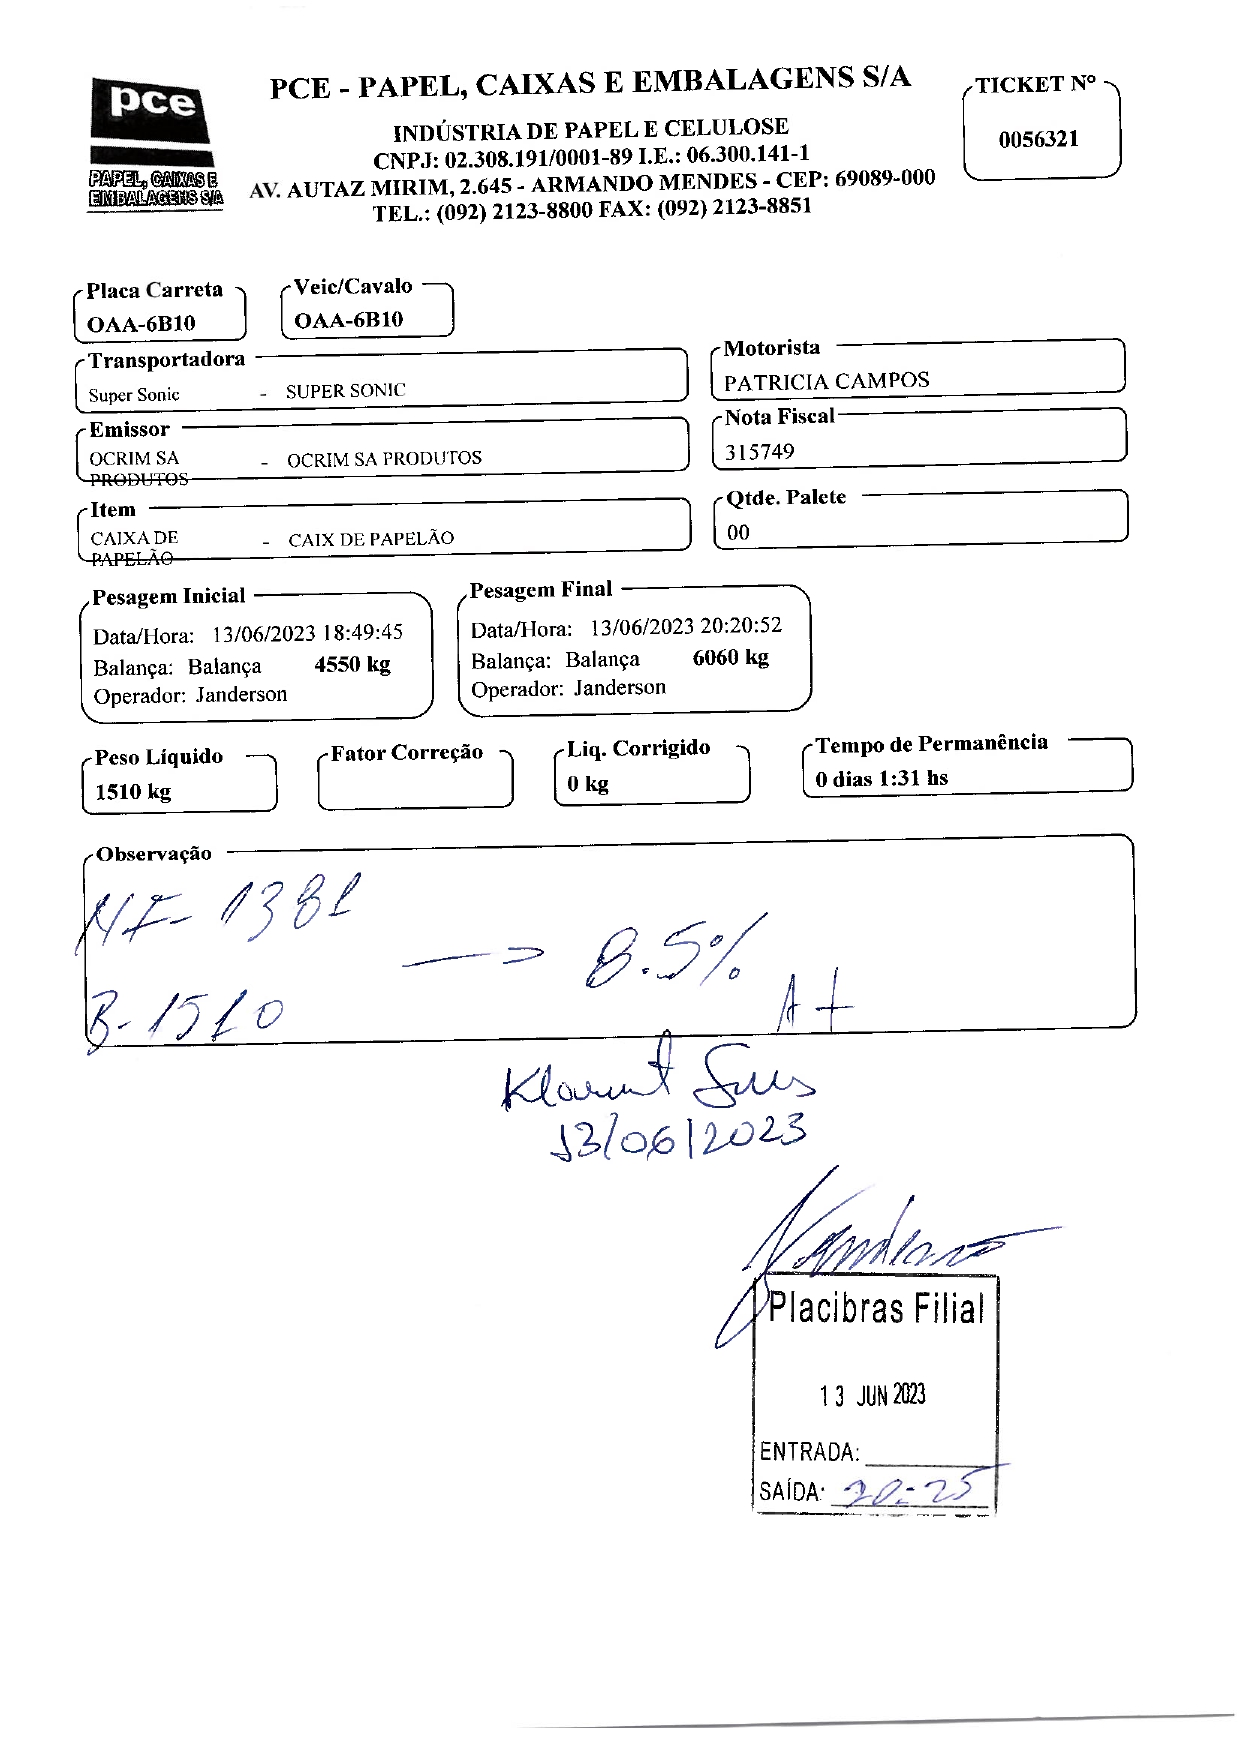 pce
PAPEL, CAIXAS E
EMBALAGENS S/A
PCE - PAPEL, CAIXAS E EMBALAGENS S/A
INDÚSTRIA DE PAPEL E CELULOSE
CNPJ: 02.308.191/0001-89 I.E.: 06.300.141-1
AV. AUTAZ MIRIM, 2.645 - ARMANDO MENDES - CEP: 69089-000
TEL.: (092) 2123-8800 FAX: (092) 2123-8851
TICKET Nº
0056321
Placa Carreta
OAA-6B10
Veic/Cavalo
OAA-6B10
Transportadora
Super Sonic - SUPER SONIC
Motorista
PATRICIA CAMPOS
Emissor
OCRIM SA - OCRIM SA PRODUTOS
PRODUTOS
Nota Fiscal
315749
Item
CAIXA DE - CAIX DE PAPELÃO
PAPELÃO
Qtde. Palete
00
Pesagem Inicial
Data/Hora: 13/06/2023 18:49:45
Balança: Balança 4550 kg
Operador: Janderson
Pesagem Final
Data/Hora: 13/06/2023 20:20:52
Balança: Balança 6060 kg
Operador: Janderson
Peso Líquido
1510 kg
Fator Correção
Liq. Corrigido
0 kg
Tempo de Permanência
0 dias 1:31 hs
Observação
NF- 1381
B- 1510
8.5%
A+
13/06/2023
Placibras Filial
13 JUN 2023
ENTRADA:
SAÍDA: 20:25